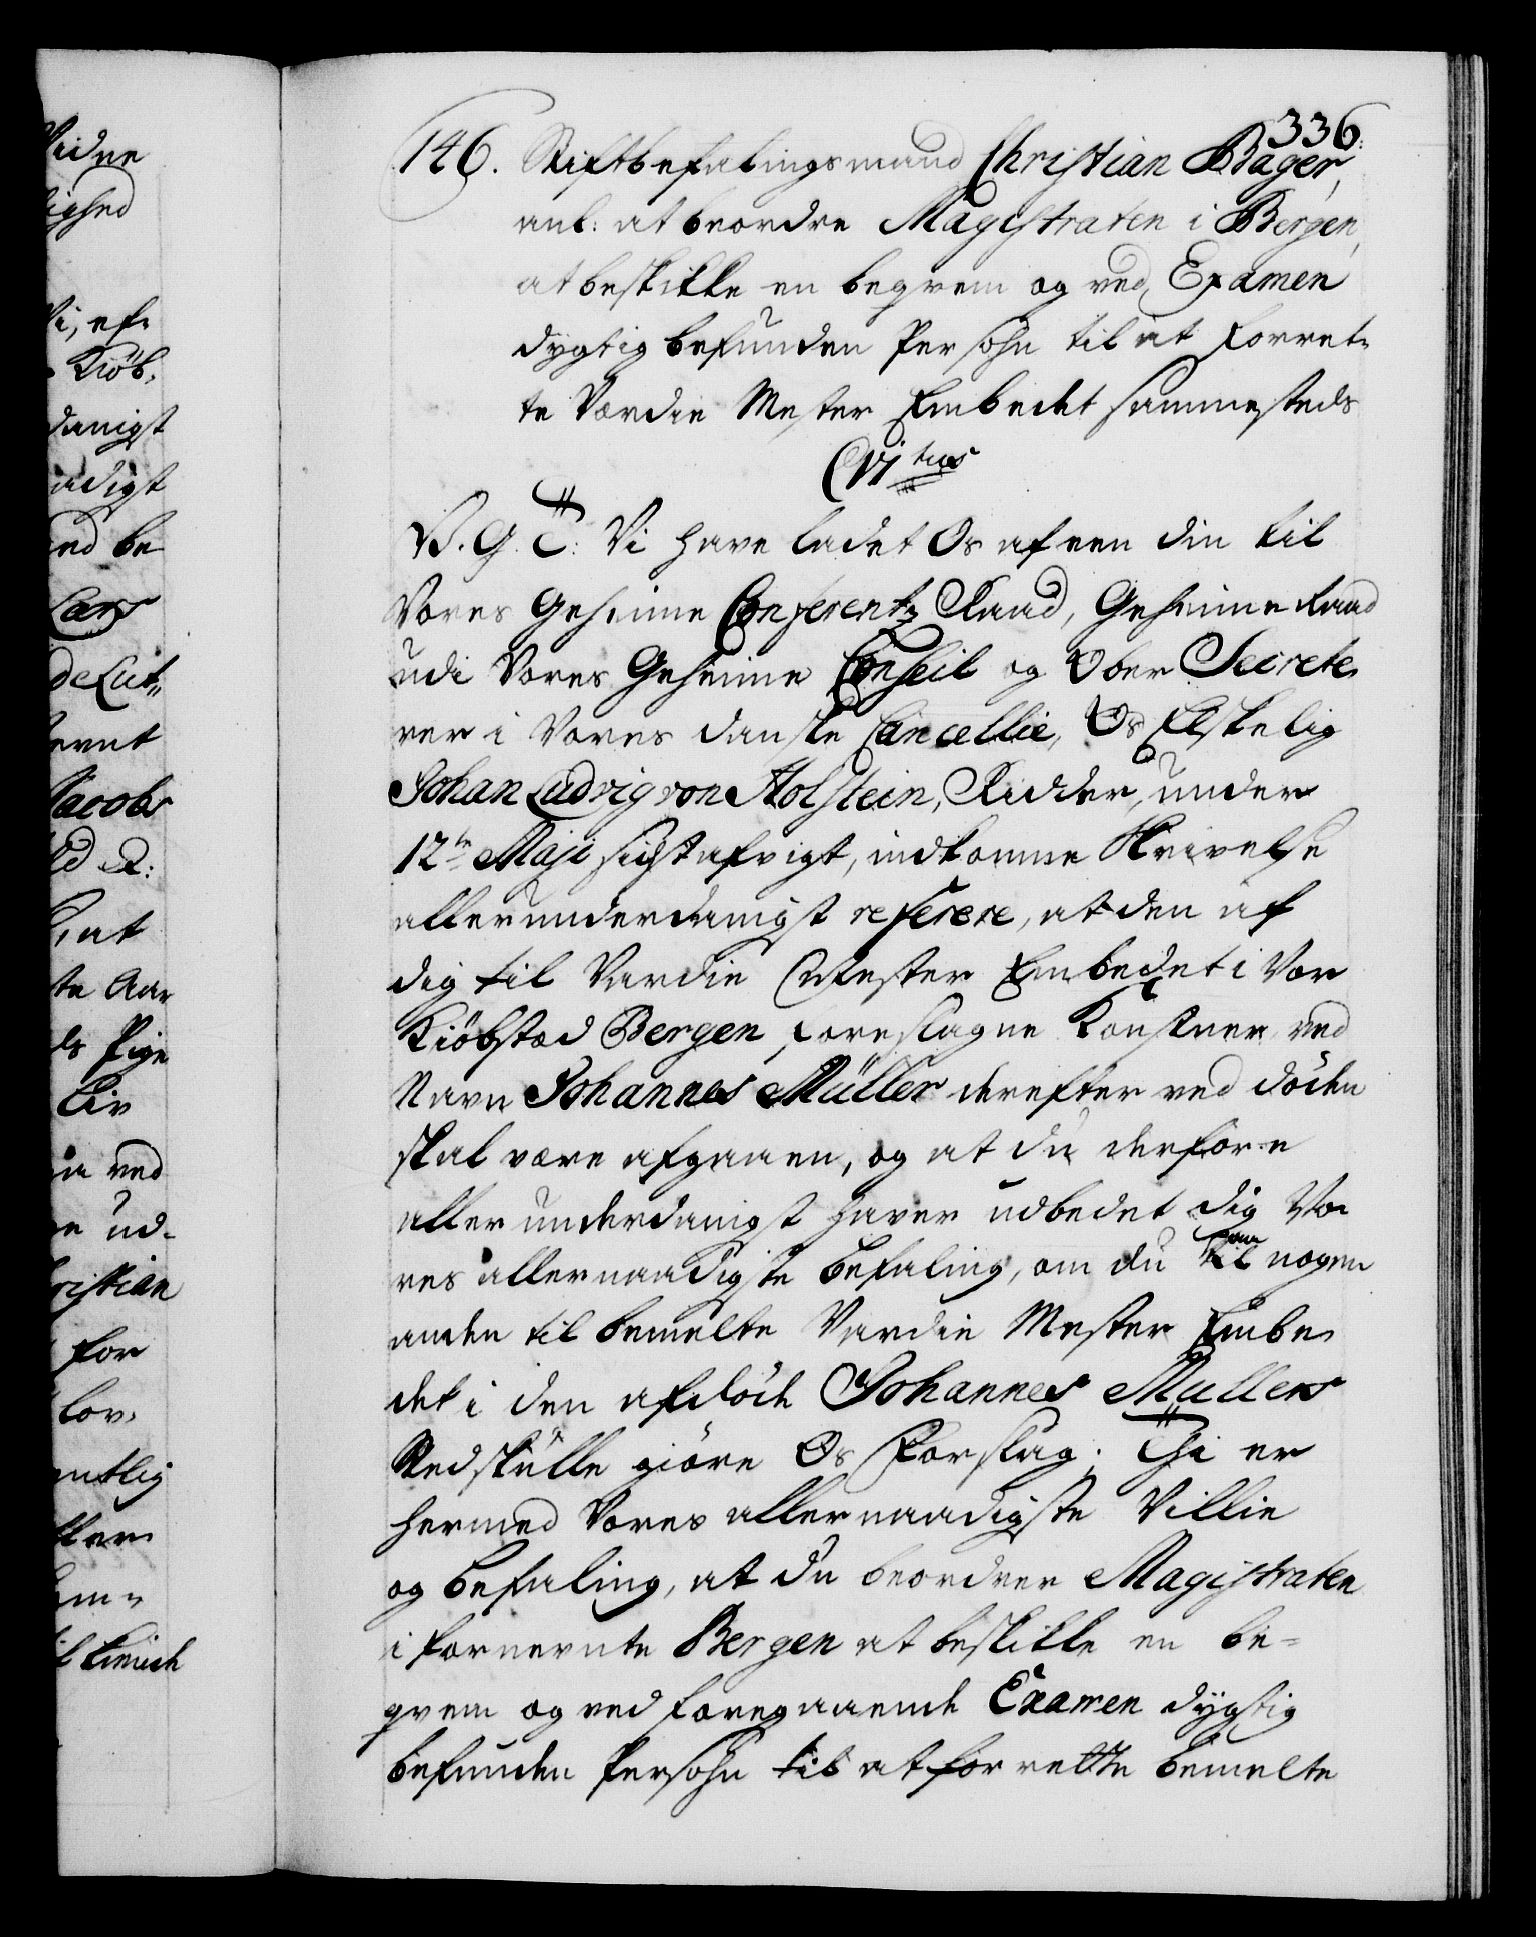 336.
146. Stiftbefalingsmand Christian Bager,
anl: at beordre Magistraten i Bergen,
at beskikke en beqvem og ved Examen
dygtig befunden Persohn til at forret-
te Vardie Mester Embedet sammesteds
C VI tus
V. G. T: Vi have ladet Os af een din til
Vores Geheime Conferentz Raad, Geheime Raad
udi Vores Geheime Conseil og Ober Secrete-
rer i Vores danske Cancellie, Os Elskelig
Johan Ludvig von Holstein, Ridder, under
12te Maji sidst afvigt, indkomne Skrivelse
allerunderdanigst referere, at den af
dig til Vardie Mester Embedet i Vor
Kiöbstad Bergen foreslagne Konstner ved
Navn Johannes Müller derefter ved döden
skal være afgaaen, og at du derfore
allerunderdanigst haver udbedet dig Vo-
res allernaadigste Befaling, om du paa nogen
anden til bemelte Vardie Mester Embe-
det i den afdöde Johannes Mullers
Sted skulle giöre Os Forslag; Thi er
hermed Vores allernaadigste Villie
og Befaling, at du beordrer Magistraten
i fornevnte Bergen at beskikke en be-
qvem og ved foregaaende Examen dygtig
befunden Persohn til at forrette bemelte